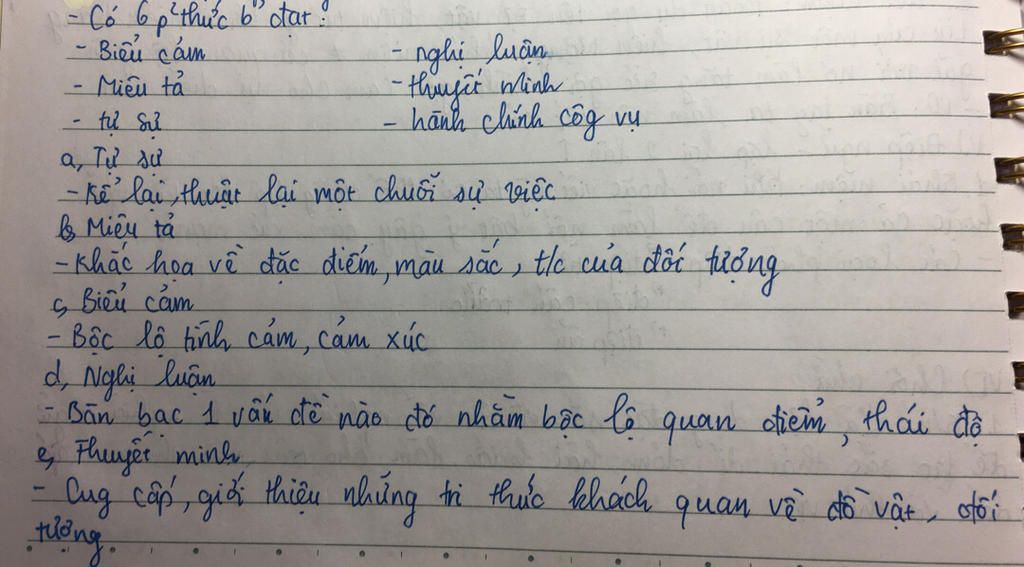 - Có 6 p² thức b² đạt:
- Biểu cảm - nghị luận
- Miêu tả - thuyết minh
- tự sự - hành chính côg vụ
a, Tự sự
- Kể lại, thuật lại một chuỗi sự việc
b, Miêu tả
- Khắc họa về đặc điểm, màu sắc, t/c của đối tượng
c, Biểu cảm
- Bộc lộ tình cảm, cảm xúc
d, Nghị luận
- Bàn bạc 1 vấn đề nào đó nhằm bộc lộ quan điểm, thái độ
e, Thuyết minh
- Cug cấp, giới thiệu những tri thức khách quan về đồ vật, đối
tượng